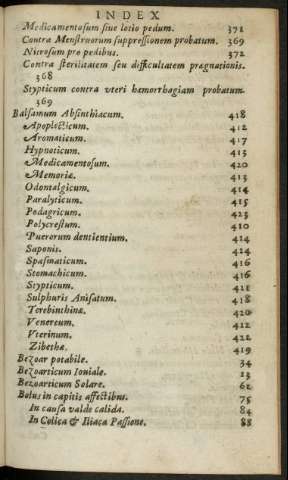 INDEX
Medicamentosum siue lotio pedum. 371
Contra Menstruorum suppressionem probatum. 369
Nitrosum pro pedibus. 372
Contra sterilitatem seu difficultatem prægnationis.
368
Stypticum contra vteri hæmorrhagiam probatum.
369
Balsamum Absinthiacum. 418
Apoplecticum. 412
Aromaticum. 417
Hypnoticum. 413
Medicamentosum. 420
Memoriæ. 413
Odontalgicum. 414
Paralyticum. 415
Podagricum. 423
Polycrestum. 410
Puerorum dentientium. 414
Saponis. 424
Spasmaticum. 416
Stomachicum. 416
Stypticum. 421
Sulphuris Anisatum. 418
Terebinthinæ. 420
Venereum. 422
Vterinum. 422
Zibethæ. 419
Bezoar potabile. 34
Bezoarticum Iouiale. 13
Bezoarticum Solare. 62
Bolus in capitis affectibus. 75
In causa valde calida. 84
In Colica & Iliaca Passione. 88